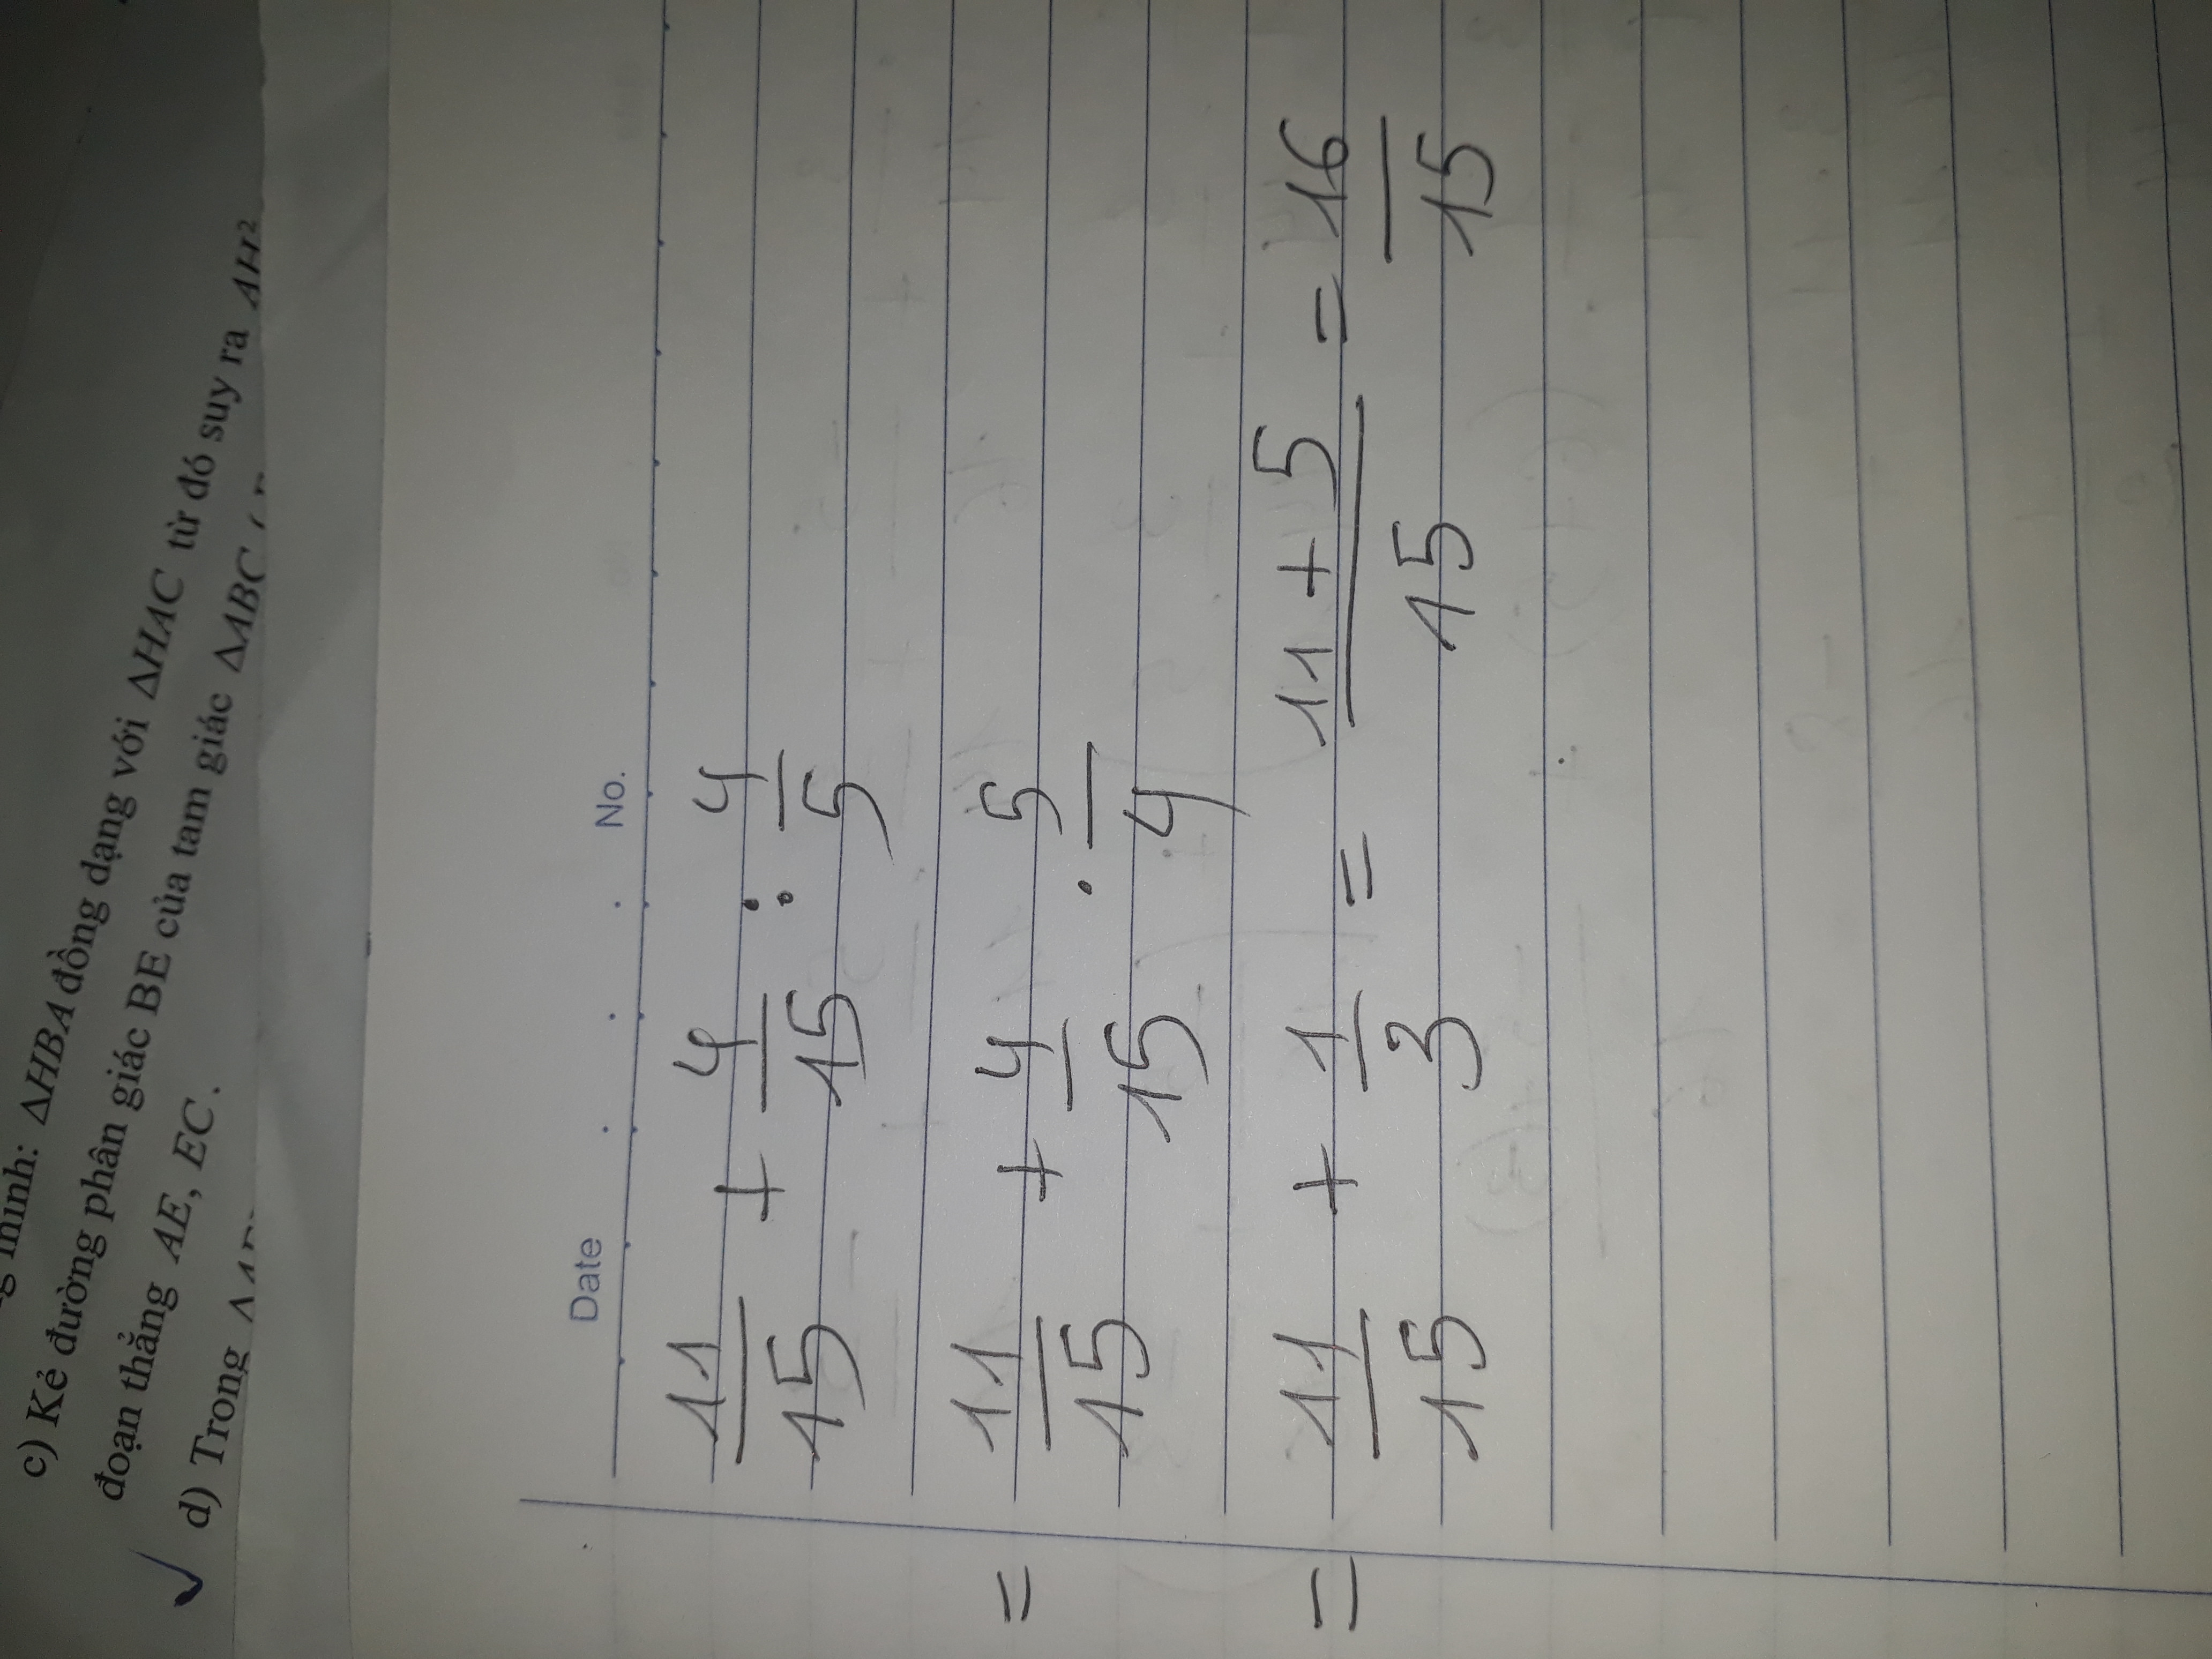 g minh: ΔHBA đồng dạng với ΔHAC từ đó suy ra AH²
c) Kẻ đường phân giác BE của tam giác ΔABC (
đoạn thẳng AE, EC.
d) Trong
Date No.
11/15 + 4/15 : 4/5
= 11/15 + 4/15 . 5/4
= 11/15 + 1/3 = 11 + 5/15 = 16/15